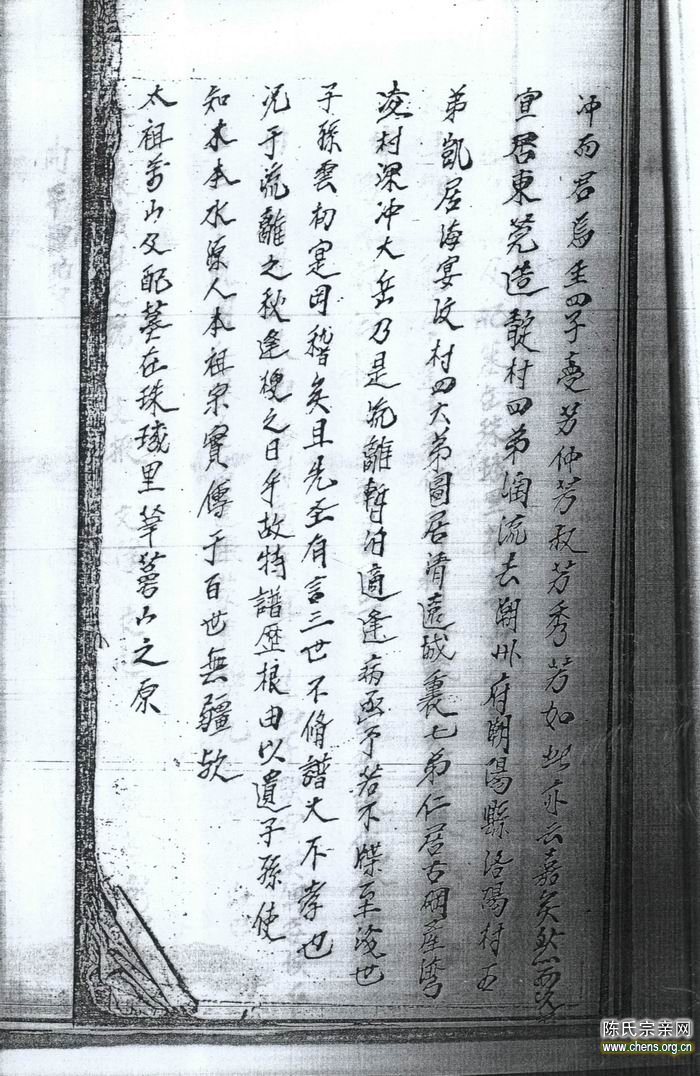 冲而君焉生四子壱芳仲芳叔芳秀芳如此亦云嘉矣然而
宣居東莞造村四弟流去潮州府潮陽縣洛陽村五
弟凱居海宴汶村四大弟圖居清遠城裏七弟仁居古岡崖灣
凌村深冲大岳乃是流離暫泊適逢病亟予若不牒至後世
子孫雲礽寔罔稽矣且先圣有言三世不脩譜大不孝也
况于流離之秋逢梗之日乎故特譜歷根由以遺子孫使
知木本水源人本祖宗實傳于百世無疆欤
太祖万山及配墓在珠璣里華萼山之原
陈氏宗亲网
www.chens.org.cn